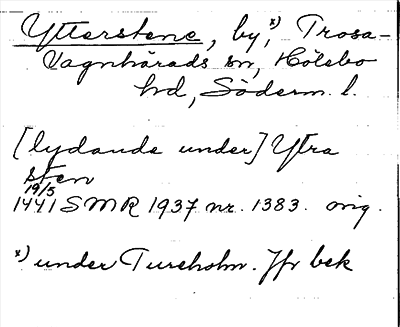 Ytterstene, by, x) Trosa-
Vagnhärads sn, Hölebo
hd, Söderm. l.
[lydande under] Ytra
sten
19/5
1441 SMR 1937 nr. 1383. orig.
x) under Tureholm. Jfr bek